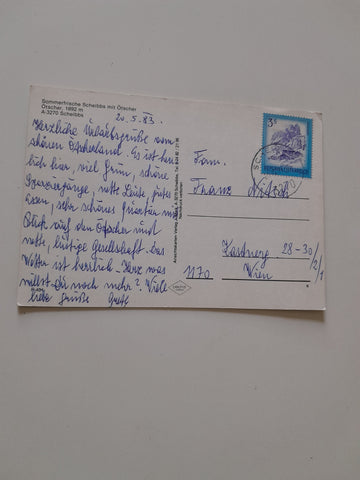 Sommerfrische Scheibbs mit Ötscher
Ötscher, 1892 m
A-3270 Scheibbs
20.5.83.
Herzliche Urlaubsgrüße vom
schönen Ötscherland. Es ist herr-
lich hier, viel Grün, schöne
Spaziergänge, nette Leute, gutes
Essen, sehr schönes Quartier mit
Blick auf den Ötscher und
nette, lustige Gesellschaft. Das
Wetter ist herrlich. Herz was
willst du noch mehr? Viele
liebe Grüße Gretl
Fam.
Franz
Kastnerg. 28-30/2/1
1170 Wien
3 S
REPUBLIK ÖSTERREICH